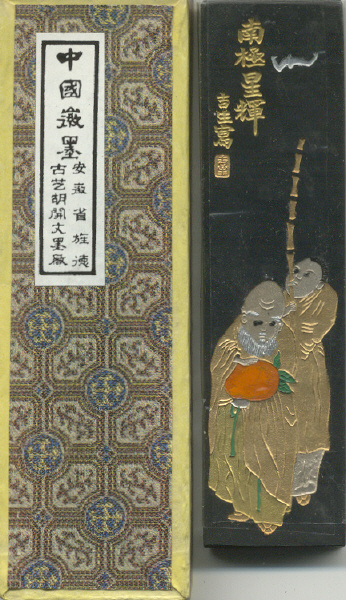 中國徽墨
安徽省旌德
古艺胡開文墨厰
南極星輝
吉生寫